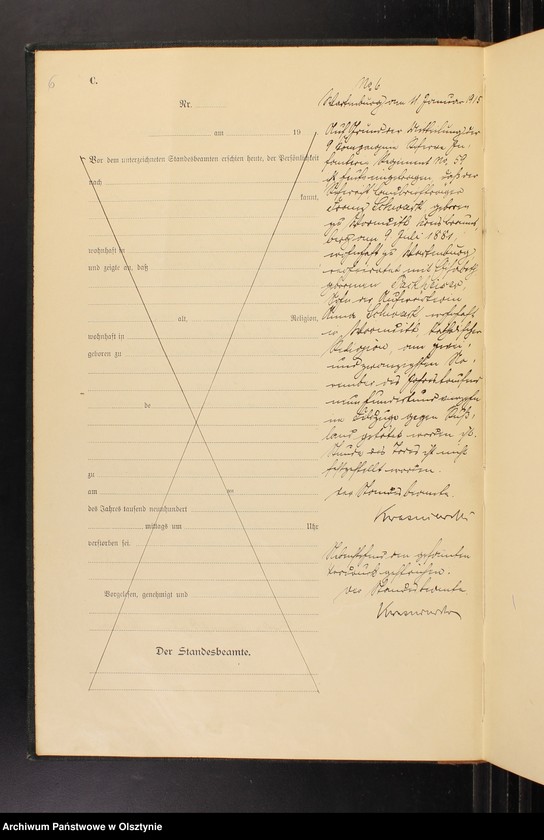 6
C.
Nr.
am 19
Vor dem unterzeichneten Standesbeamten erschien heute, der Persönlichkeit
nach
kannt,
wohnhaft in
und zeigte an, daß
alt, Religion,
wohnhaft in
geboren zu
de
zu
am
des Jahres tausend neunhundert
mittags um Uhr
verstorben sei.
Vorgelesen, genehmigt und
Der Standesbeamte.
No 6
Wartenburg am 11 Januar 1915
Auf Grund der Mitteilung der
9 Compagnie Reserve In-
fanterie Regiment No. 59
ist heute eingetragen, daß der
Landbriefträger
Franz Schwark geboren
zu Wormditt Kreis Brauns-
berg am 9 Juli 1881,
wohnhaft zu Wartenburg
verheiratet mit Elisabeth
geborenen
Sohn der
Anna Schwark wohnhaft
in Wormditt katholischer
Religion, am zwei-
undzwanzigsten No-
vember des Jahres tausend
neunhundertundvierzehn
im Feldzuge gegen Ruß-
land getötet worden ist.
Stunde des Todes ist nicht
festgestellt worden.
Der Standesbeamte.
Vorstehend am gesamten
Vordruck gestrichen.
Der Standesbeamte
Archiwum Państwowe w Olsztynie